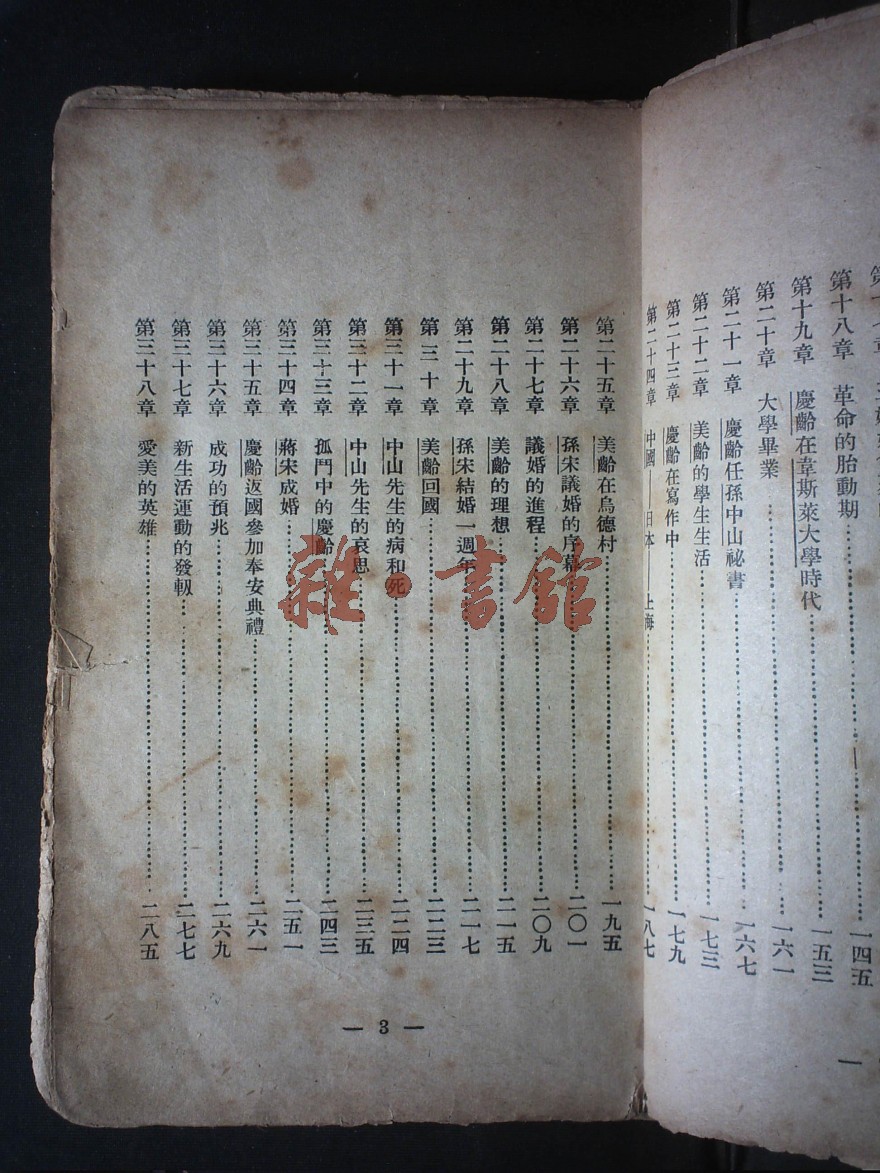 第十八章　革命的胎動期……一四五
第十九章　慶齡在韋斯萊大學時代……一五三
第二十章　大學畢業……一六一
第二十一章　慶齡任孫中山祕書……一六七
第二十二章　美齡的學生生活……一七三
第二十三章　慶齡在寫作中……一七九
第二十四章　中國——日本——上海……一八七
第二十五章　美齡在烏德村……一九五
第二十六章　孫宋議婚的序幕……二〇一
第二十七章　議婚的進程……二〇九
第二十八章　美齡的理想……二一五
第二十九章　孫宋結婚一週年……二一七
第三十章　美齡回國……二二三
第三十一章　中山先生的病和死……二二四
第三十二章　中山先生的哀思……二三五
第三十三章　孤鬥中的慶齡……二四三
第三十四章　蔣宋成婚……二五一
第三十五章　慶齡返國參加奉安典禮……二六一
第三十六章　成功的預兆……二六九
第三十七章　新生活運動的發軔……二七七
第三十八章　愛美的英雄……二八五
— 3 —
雜·書館